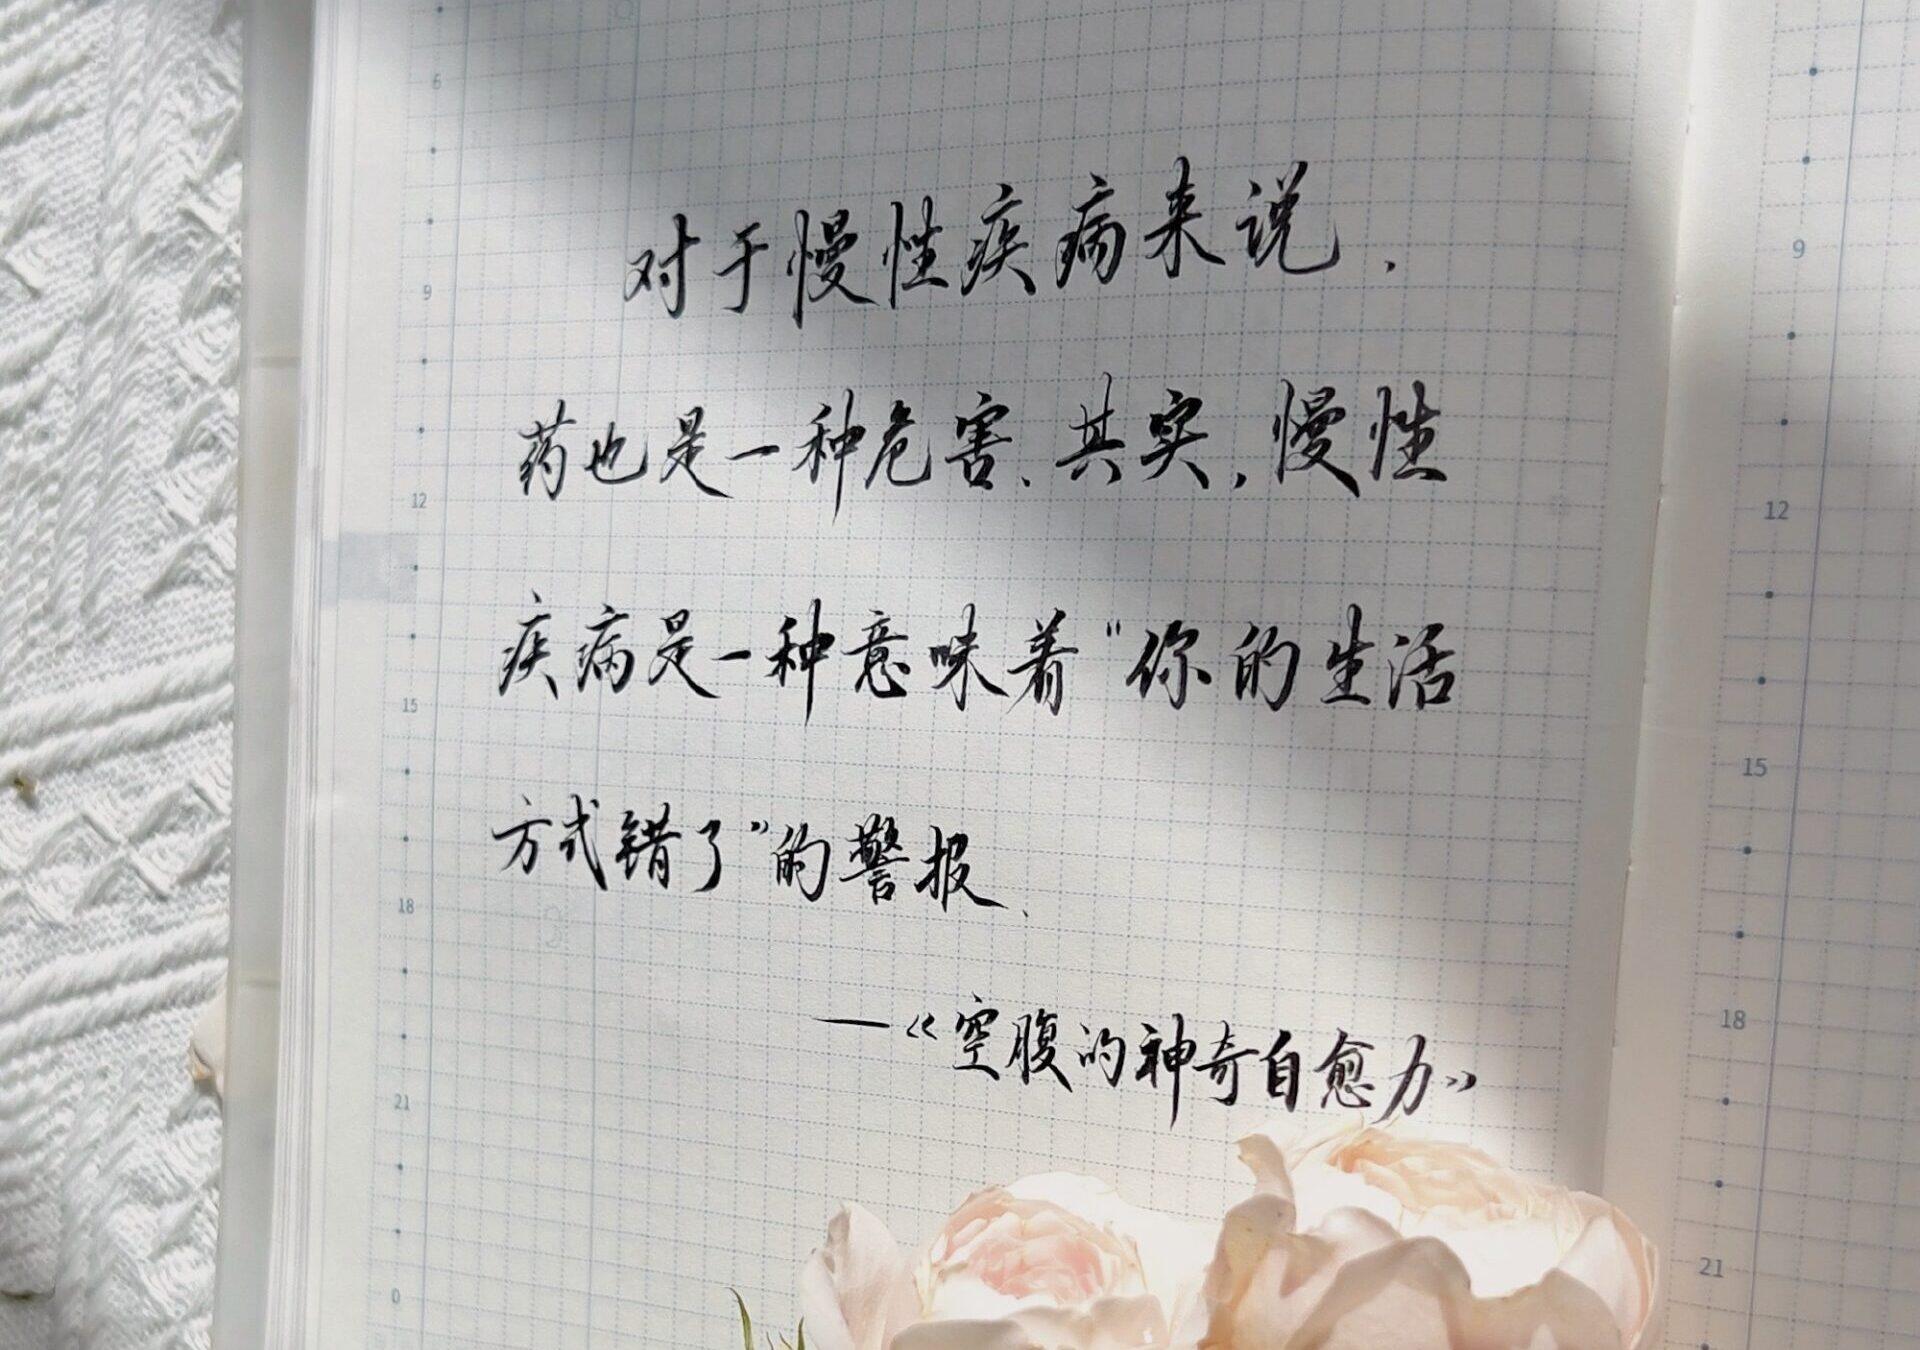 对于慢性疾病来说,
药也是一种危害.其实,慢性
疾病是一种意味着“你的生活
方式错了”的警报.
—《空腹的神奇自愈力》
6
9
12
15
18
21
0
9
12
15
18
21